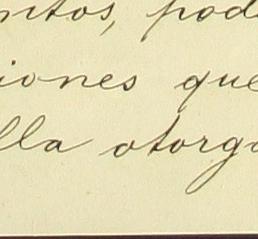 ntos, pod
iones que
lla otorga